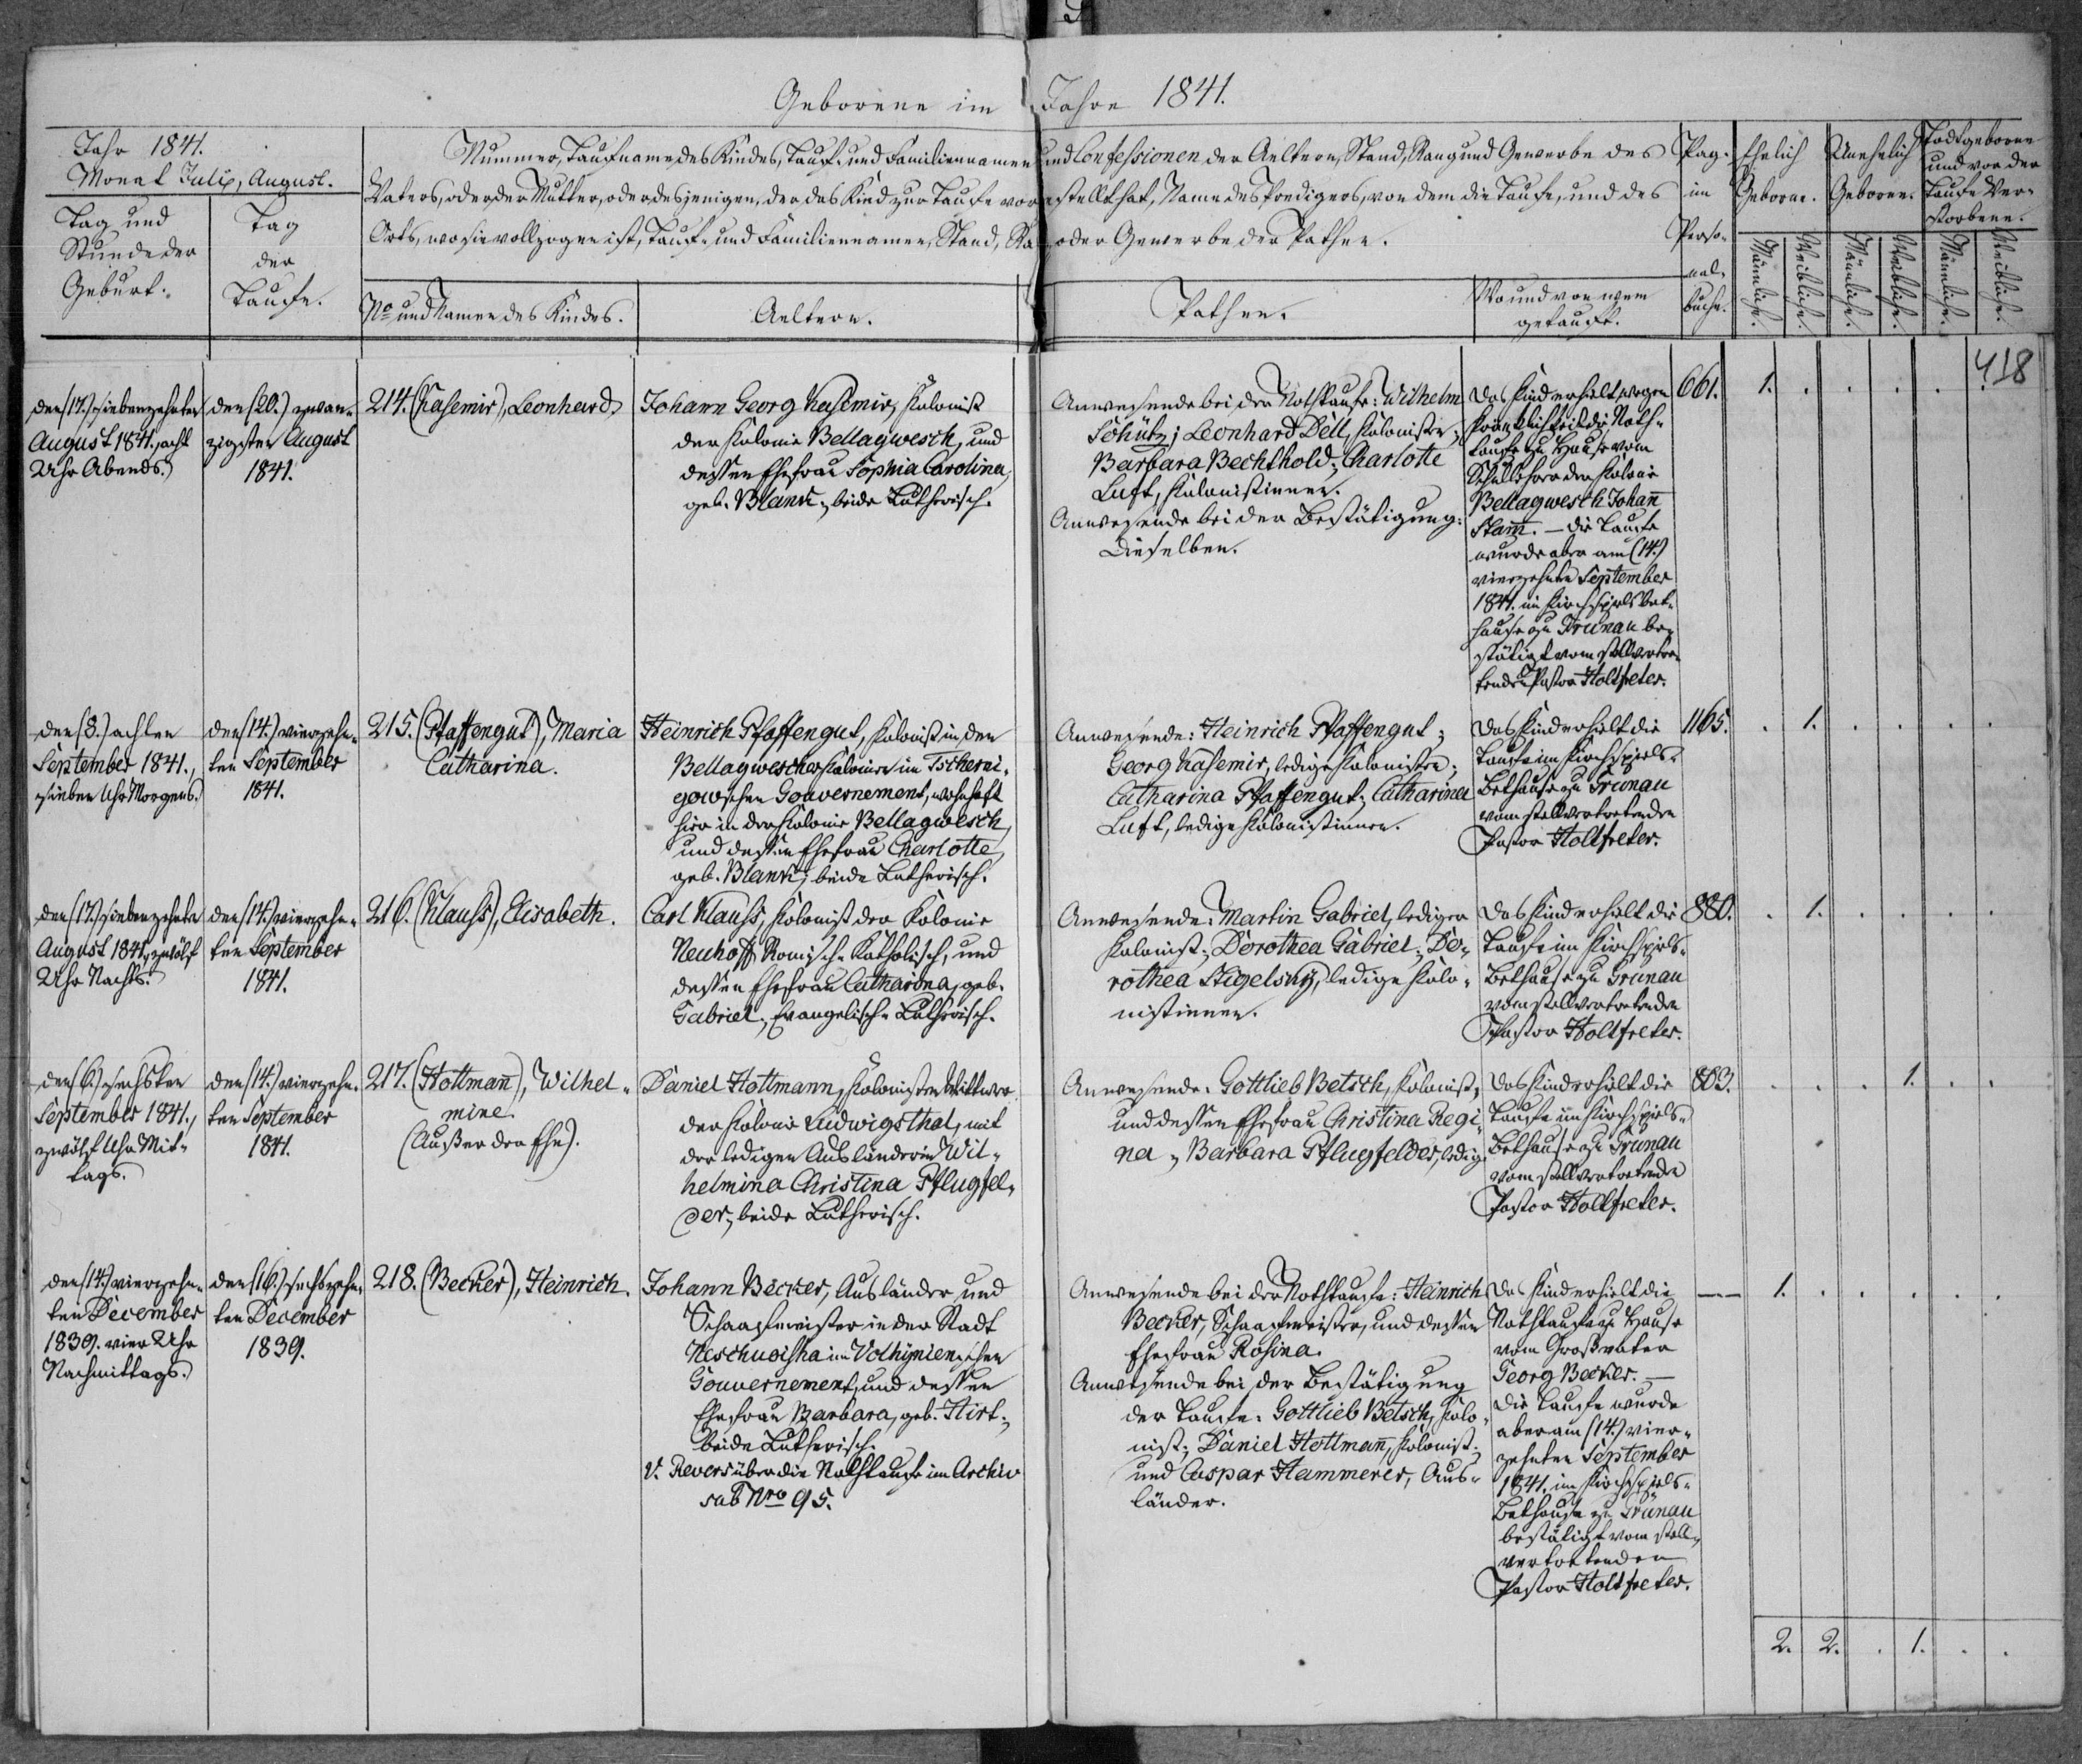 Geborene im Jahre 1841.
Jahr 1841.
Monat July, August.
Tag und
Stunde der
Geburt.
Tag
der
Taufe.
Nummer, Taufname des Kindes, Tauf- und Familiennamen und Confessionen der Aeltern, Stand, Rang und Gewerbe des
Vaters, oder der Mutter, oder desjenigen, der das Kind zur Taufe vorgestellt hat, Name des Predigers, von dem die Taufe, und des
Orts, wo sie vollzogen ist, Tauf- und Familiennamen, Stand, Rang oder Gewerbe der Pathen.
No und Namen des Kindes.
Aeltern.
Pathen.
Wo und von wem
getauft.
Pag.
im
Perso-
nal-
buche.
Ehelich
Geborne.
Unehelich
Geborne.
Todtgeborne
und vor der
Taufe Ver-
storbene.
Männliche.
Weibliche.
Männliche.
Weibliche.
Männliche.
Weibliche.
418
den (17.) siebenzehnten
August 1841., acht
Uhr Abends.
den (20.) zwan-
zigsten August
1841.
214. (Kasemir), Leonhard.
Johann Georg Kasemir, Kolonist
der Kolonie Bellagwesch, und
dessen Ehefrau Sophia Carolina,
geb. Blank; beide Lutherisch.
Anwesende bei der Nothtaufe: Wilhelm
Schütz; Leonhard Dell, Kolonisten;
Barbara Bechthold; Charlotte
Luft, Kolonistinnen.
Anwesende bei der Bestätigung:
Dieselben.
Das Kind erhielt wegen
Kränklichkeit die Noth-
taufe zu Hause vom
Schullehrer der Kolonie
Bellagwesch Johan̄
Stam̄. — Die Taufe
wurde aber am (14.)
vierzehnten September
1841. im Kirchspiels Bet-
hause zu Grunau be-
stätigt vom stellvertre-
tenden Pastor Holtfreter.
661. 1. . . . . .
den (8.) achten
September 1841.,
sieben Uhr Morgens.
den (14.) vierzehn-
ten September
1841.
215. (Pfaffengut), Maria
Catharina.
Heinrich Pfaffengut, Kolonist in den
Bellagwescher Kolonien im Tscherni-
gowschen Gouvernement, wohnhaft
hier in der Kolonie Bellagwesch,
und dessen Ehefrau Charlotte,
geb. Blank; beide Lutherisch.
Anwesende: Heinrich Pfaffengut;
Georg Kasemir, ledige Kolonisten;
Catharina Pfaffengut; Catharina
Luft, ledige Kolonistinnen.
Das Kind erhielt die
Taufe im Kirchspiels-
Bethause zu Grunau
vom stellvertretenden
Pastor Holtfreter.
1165. . 1. . . . .
den (17.) siebenzehnten
August 1841., zwölf
Uhr Nachts.
den (14.) vierzehn-
ten September
1841.
216. (Klauss), Elisabeth.
Carl Klauss, Kolonist der Kolonie
Neuhoff, Römisch-Katholisch, und
dessen Ehefrau Catharina, geb.
Gabriel, Evangelisch-Lutherisch.
Anwesende: Martin Gabriel, lediger
Kolonist; Dorothea Gabriel; Do-
rothea Stigelsky, ledige Kolo-
nistinnen.
Das Kind erhielt die
Taufe im Kirchspiels-
Bethause zu Grunau
vom stellvertretenden
Pastor Holtfreter.
880. . 1. . . . .
den (6.) sechsten
September 1841.,
zwölf Uhr Mit-
tags.
den (14.) vierzehn-
ten September
1841.
217. (Hottman̄), Wilhel-
mine.
(Außer der Ehe).
Daniel Hottmann, Kolonisten Wittwer
der Kolonie Ludwigsthal, mit
der ledigen Ausländerin Wil-
helmina Christina Pflugfel-
der; beide Lutherisch.
Anwesende: Gottlieb Betsch, Kolonist,
und dessen Ehefrau Christina Regi-
na; Barbara Pflugfelder, ledig.
Das Kind erhielt die
Taufe im Kirchspiels-
Bethause zu Grunau
vom stellvertretenden
Pastor Holtfreter.
803. . . . 1. . .
den (14.) vierzehn-
ten December
1839. vier Uhr
Nachmittags.
den (16.) sechszehn-
ten December
1839.
218. (Becker), Heinrich.
Johann Becker, Ausländer und
Schaafmeister in der Stadt
Neschwisha im Volhynienschen
Gouvernement, und dessen
Ehefrau Barbara, geb. Hirt;
beide Lutherisch.
V. Revers über die Nothtaufe im Archiv
sub Nro 95.
Anwesende bei der Nothtaufe: Heinrich
Becker, Schaafmeister, und dessen
Ehefrau Rosina.
Anwesende bei der Bestätigung
der Taufe: Gottlieb Betsch, Kolo-
nist; Daniel Hottman̄, Kolonist;
und Caspar Hammerer, Aus-
länder.
Das Kind erhielt die
Nothtaufe zu Hause
vom Großvater
Georg Becker. —
Die Taufe wurde
aber am (14.) vier-
zehnten September
1841. im Kirchspiels-
Bethause zu Grunau
bestätigt vom stell-
vertretenden
Pastor Holtfreter.
— 1. . . . . .
2. 2. . 1. . .